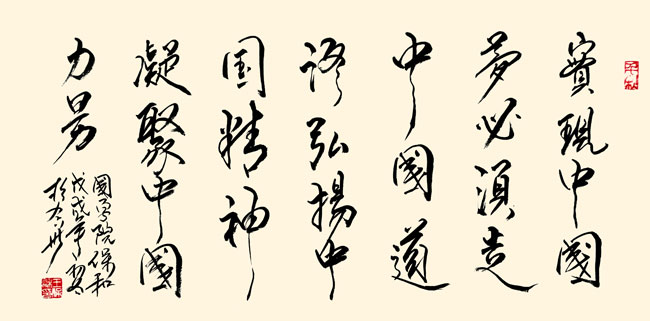 實現中國
夢必須走
中國道
路弘揚中
国精神
凝聚中國
力量
國學院保和
戊戌年